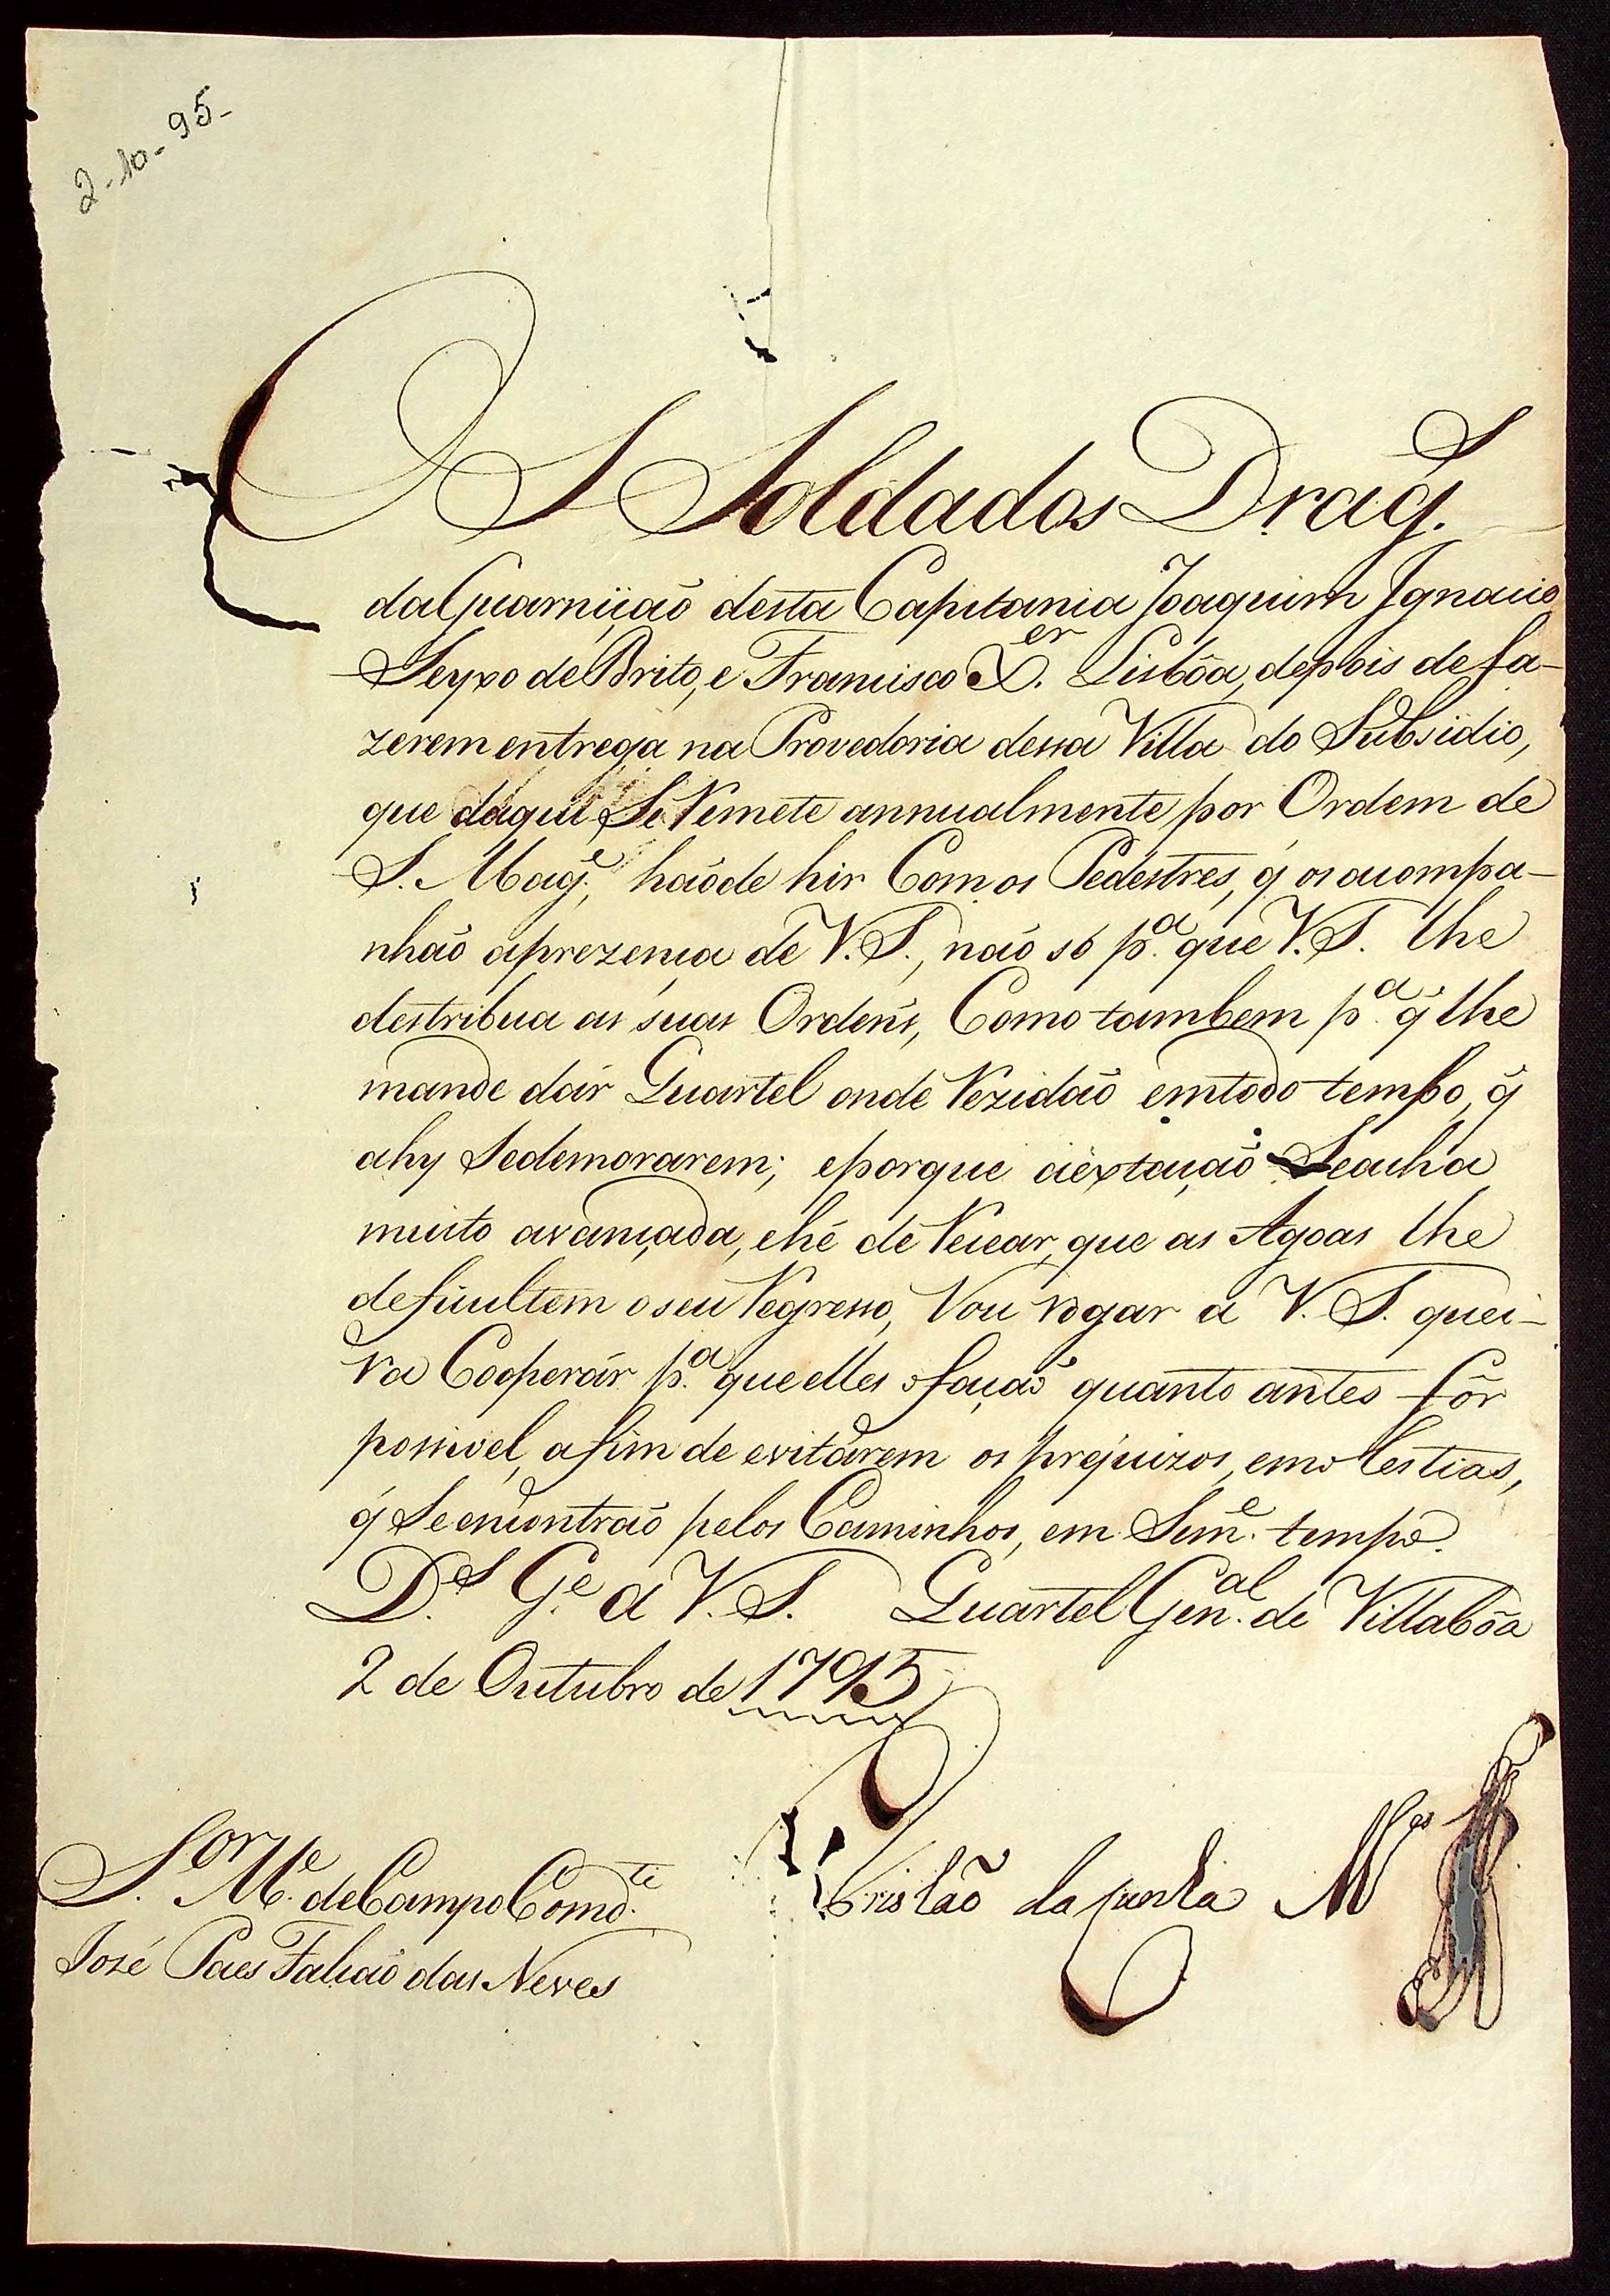 2-10-95-
OS Soldados Drag.s
da Guarnição desta Capitania Joaquim Ignacio
Seyxo de Brito, e Francisco X.er Lisbôa, depois de fa-
zerem entrega na Provedoria dessa Villa do Subsidio,
que daqui Se Remete annualmente por Ordem de
S. Mag.e, haõde hir Com os Pedestres, q̃ os acompa-
nhaõ aprezença de V.S., naõ só p.a que V.S. lhe
destribua as suas Ordens, Como tambem p.a q̃ lhe
mande dár Quartel onde Rezidaõ em todo tempo, q̃
ahy Sedemorarem; eporque aextaçaõ Seacha
muito avançada, ehé de Recear, que as Agoas lhe
deficultem oseu Regresso, Vou rogar a V.S. quei-
ra Cooperár p.a que elles ofaçaõ quanto antes fôr
possivel, afim de evitárem os prejuizos, emolestias,
q̃ Seencontraõ pelos Caminhos, em Sem.e tempo.
D.s G.e a V.S. Quartel Gen.al de Villabôa
2 de Outubro de 1795
Tristaõ da Cunha M.es
S.or M.e de Campo Comd.te
José Paes Falcaõ das Neves